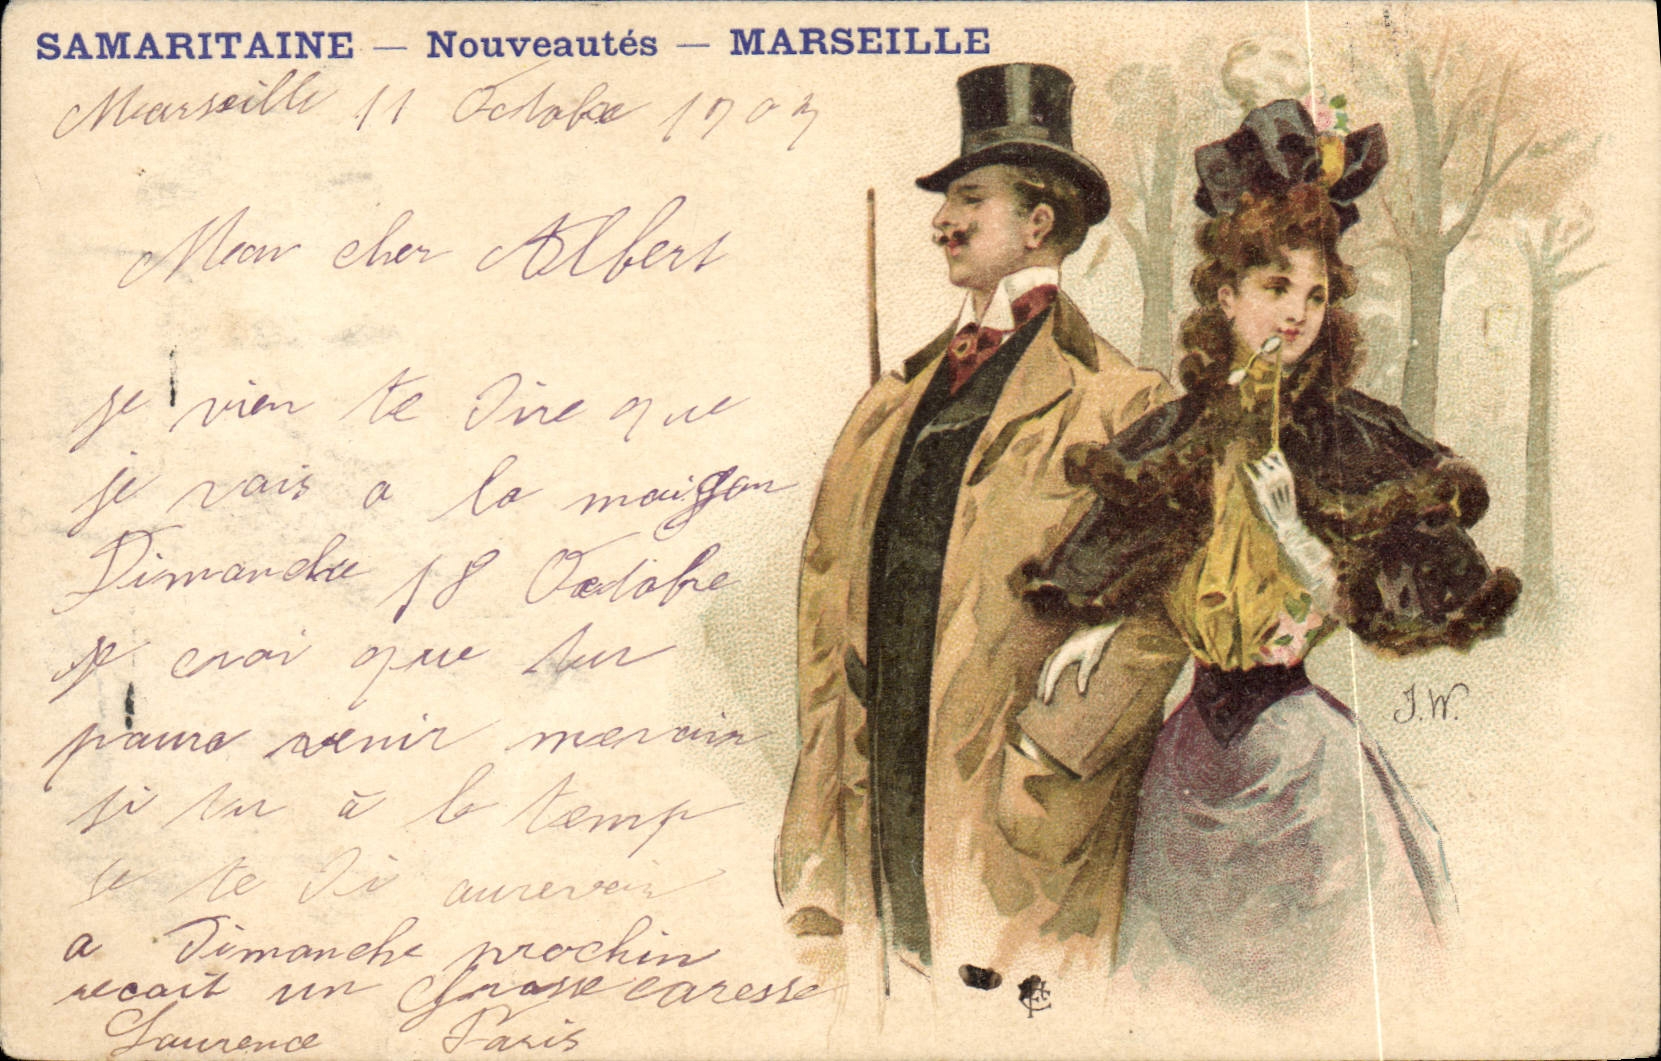 SAMARITAINE — Nouveautés — MARSEILLE
Marseille 11 Octobre 1903
Mon cher Albert
je vien te Dire que
je vais a la maison
Dimanche 18 Octobre
je crai que tu
paura venir me voir
si tu à le temp
je te Di aurevoir
a Dimanche prochin
recait un Grosse caresse
Laurence Paris
J.W.